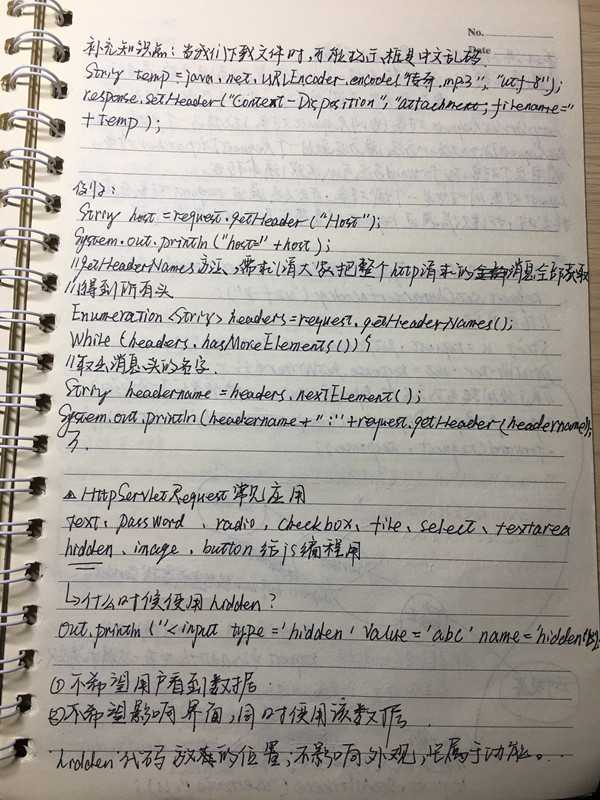 No.
Date
补充知识点：当我们下载文件时，可能提示框是中文乱码
String temp=java.net.URLEncoder.encode("传奇.mp3", "utf-8");
response.setHeader("Content-Disposition", "attachment; filename="
+temp);
例子：
String host=request.getHeader("Host");
System.out.println("host="+host);
//getHeaderNames方法，带着大家把整个http请求的消息全部获取
//得到所有头
Enumeration<String> headers=request.getHeaderNames();
While (headers.hasMoreElements()) {
//取出消息头的名字.
String headername=headers.nextElement();
System.out.println(headername+":"+request.getHeader(headername);
}.
HttpServletRequest常见应用
text、password、radio、checkbox、file、select、textarea
hidden、image、button给js编程用
什么时候使用hidden？
out.println("<input type='hidden' value='abc' name='hidden
①不希望用户看到数据.
②不希望影响界面，同时使用该数据.
hidden代码放在的位置；不影响外观，属于功能。